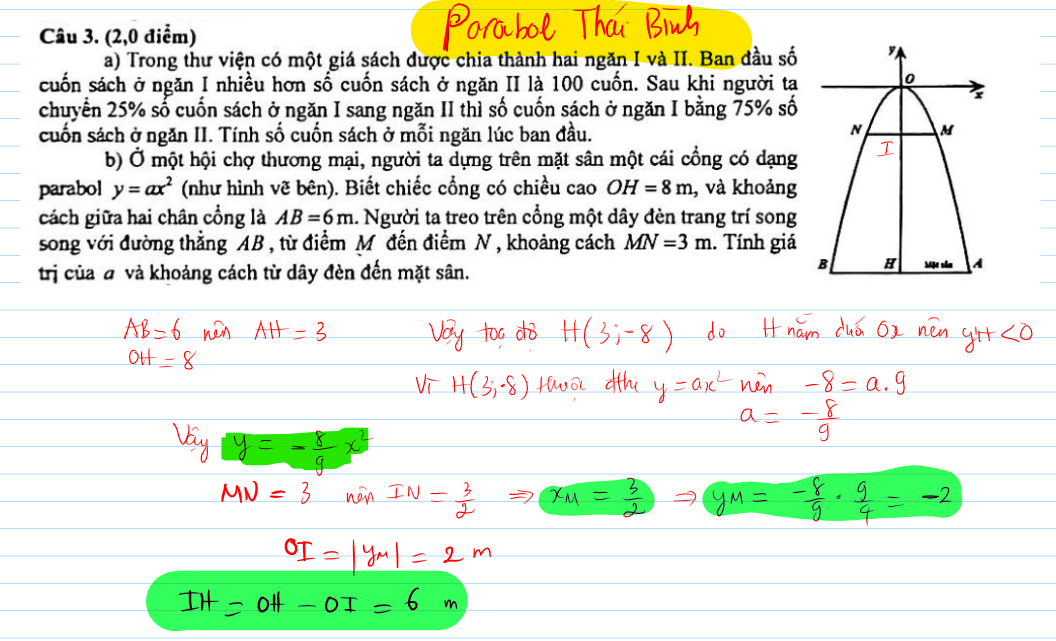 Parabol Thái Bình
Câu 3. (2,0 điểm)
a) Trong thư viện có một giá sách được chia thành hai ngăn I và II. Ban đầu số
cuốn sách ở ngăn I nhiều hơn số cuốn sách ở ngăn II là 100 cuốn. Sau khi người ta
chuyển 25% số cuốn sách ở ngăn I sang ngăn II thì số cuốn sách ở ngăn I bằng 75% số
cuốn sách ở ngăn II. Tính số cuốn sách ở mỗi ngăn lúc ban đầu.
b) Ở một hội chợ thương mại, người ta dựng trên mặt sân một cái cổng có dạng
parabol y = ax² (như hình vẽ bên). Biết chiếc cổng có chiều cao OH = 8 m, và khoảng
cách giữa hai chân cổng là AB = 6 m. Người ta treo trên cổng một dây đèn trang trí song
song với đường thẳng AB, từ điểm M đến điểm N, khoảng cách MN = 3 m. Tính giá
trị của a và khoảng cách từ dây đèn đến mặt sân.
y
O
x
N
M
I
B
H
Mặt sân
A
AB = 6 nên AH = 3
OH = 8
Vậy toạ độ H(3; -8) do H nằm dưới Ox nên yH < 0
Vì H(3; -8) thuộc đthị y = ax² nên -8 = a.9
a = -8/9
Vậy y = -8/9 x²
MN = 3 nên IN = 3/2 ⇒ xM = 3/2 ⇒ yM = -8/9 . 9/4 = -2
OI = |yM| = 2 m
IH = OH - OI = 6 m